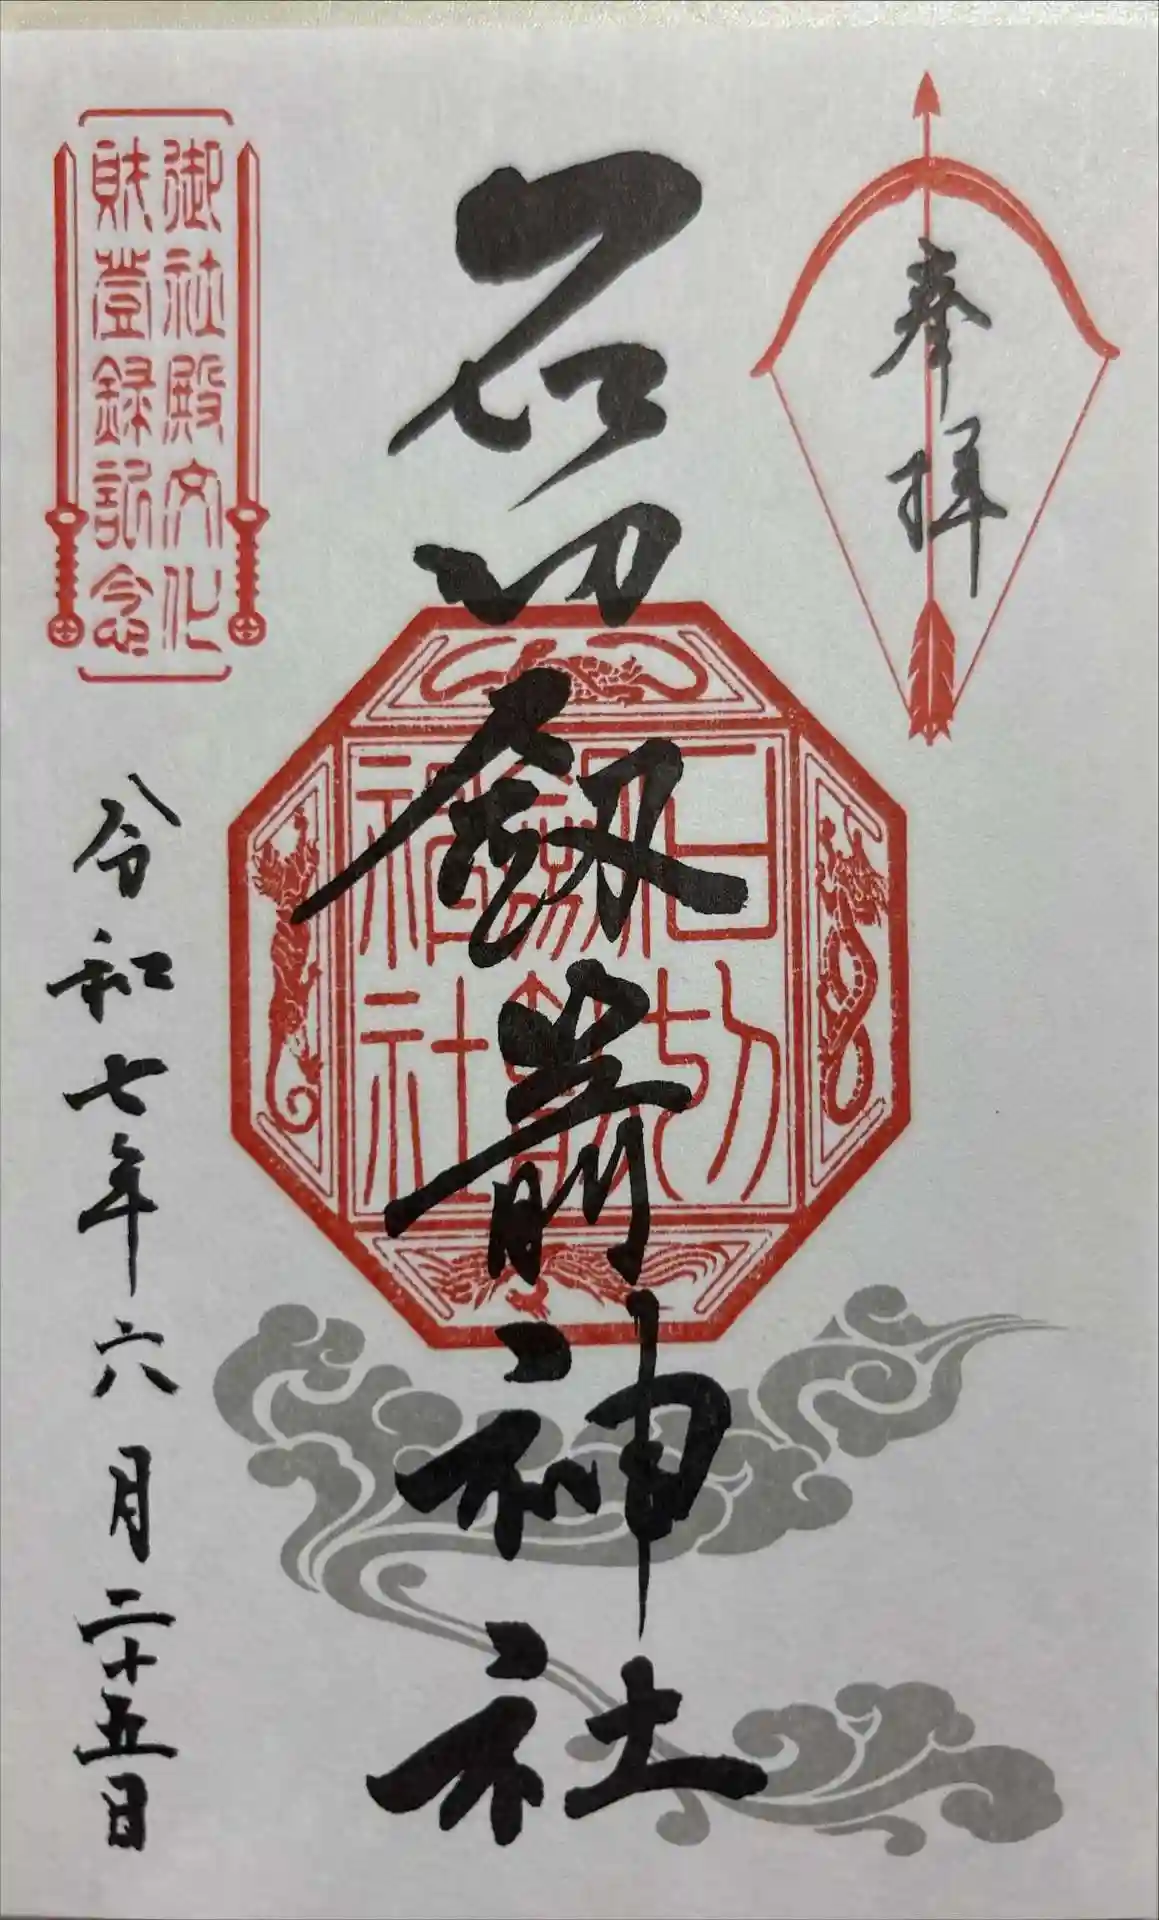 奉拝
石切劔箭神社
石切
劔箭
神社
御社殿文化
財登録記念
令和七年六月二十五日